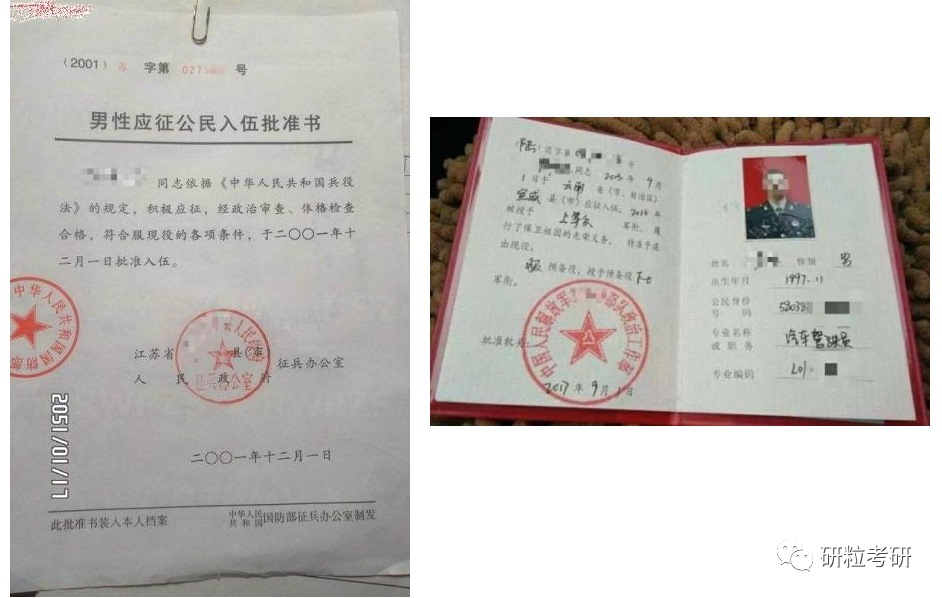 （2001）苏 字第 027 号
男性应征公民入伍批准书
同志依据《中华人民共和国兵役
法》的规定，积极应征，经政治审查、体格检查
合格，符合服现役的各项条件，于二〇〇一年十
二月一日批准入伍。
中华人民共和国国防部
江苏省 县（市） 征兵办公室
人民政府
人民政府
征兵办公室
二〇〇一年十二月一日
2051/01/17
此批准书装入本人档案
中华人民共和国国防部征兵办公室制发
退字第 号
同志 2015 年 9 月
1 日于 云南 省（市、自治区）
宣威 县（市）应征入伍，2016 年
被授予 上等兵 军衔，履
行了保卫祖国的光荣义务，特准予退
出现役。
服 预备役，授予预备役 下士
军衔。
批准机关：
中国人民解放军 部队政治工作部
八一
2017 年 9 月 1 日
姓名 性别 男
出生年月 1997.11
公民身份
号码
专业名称 汽车驾驶员
或职务
专业编码
研粒考研